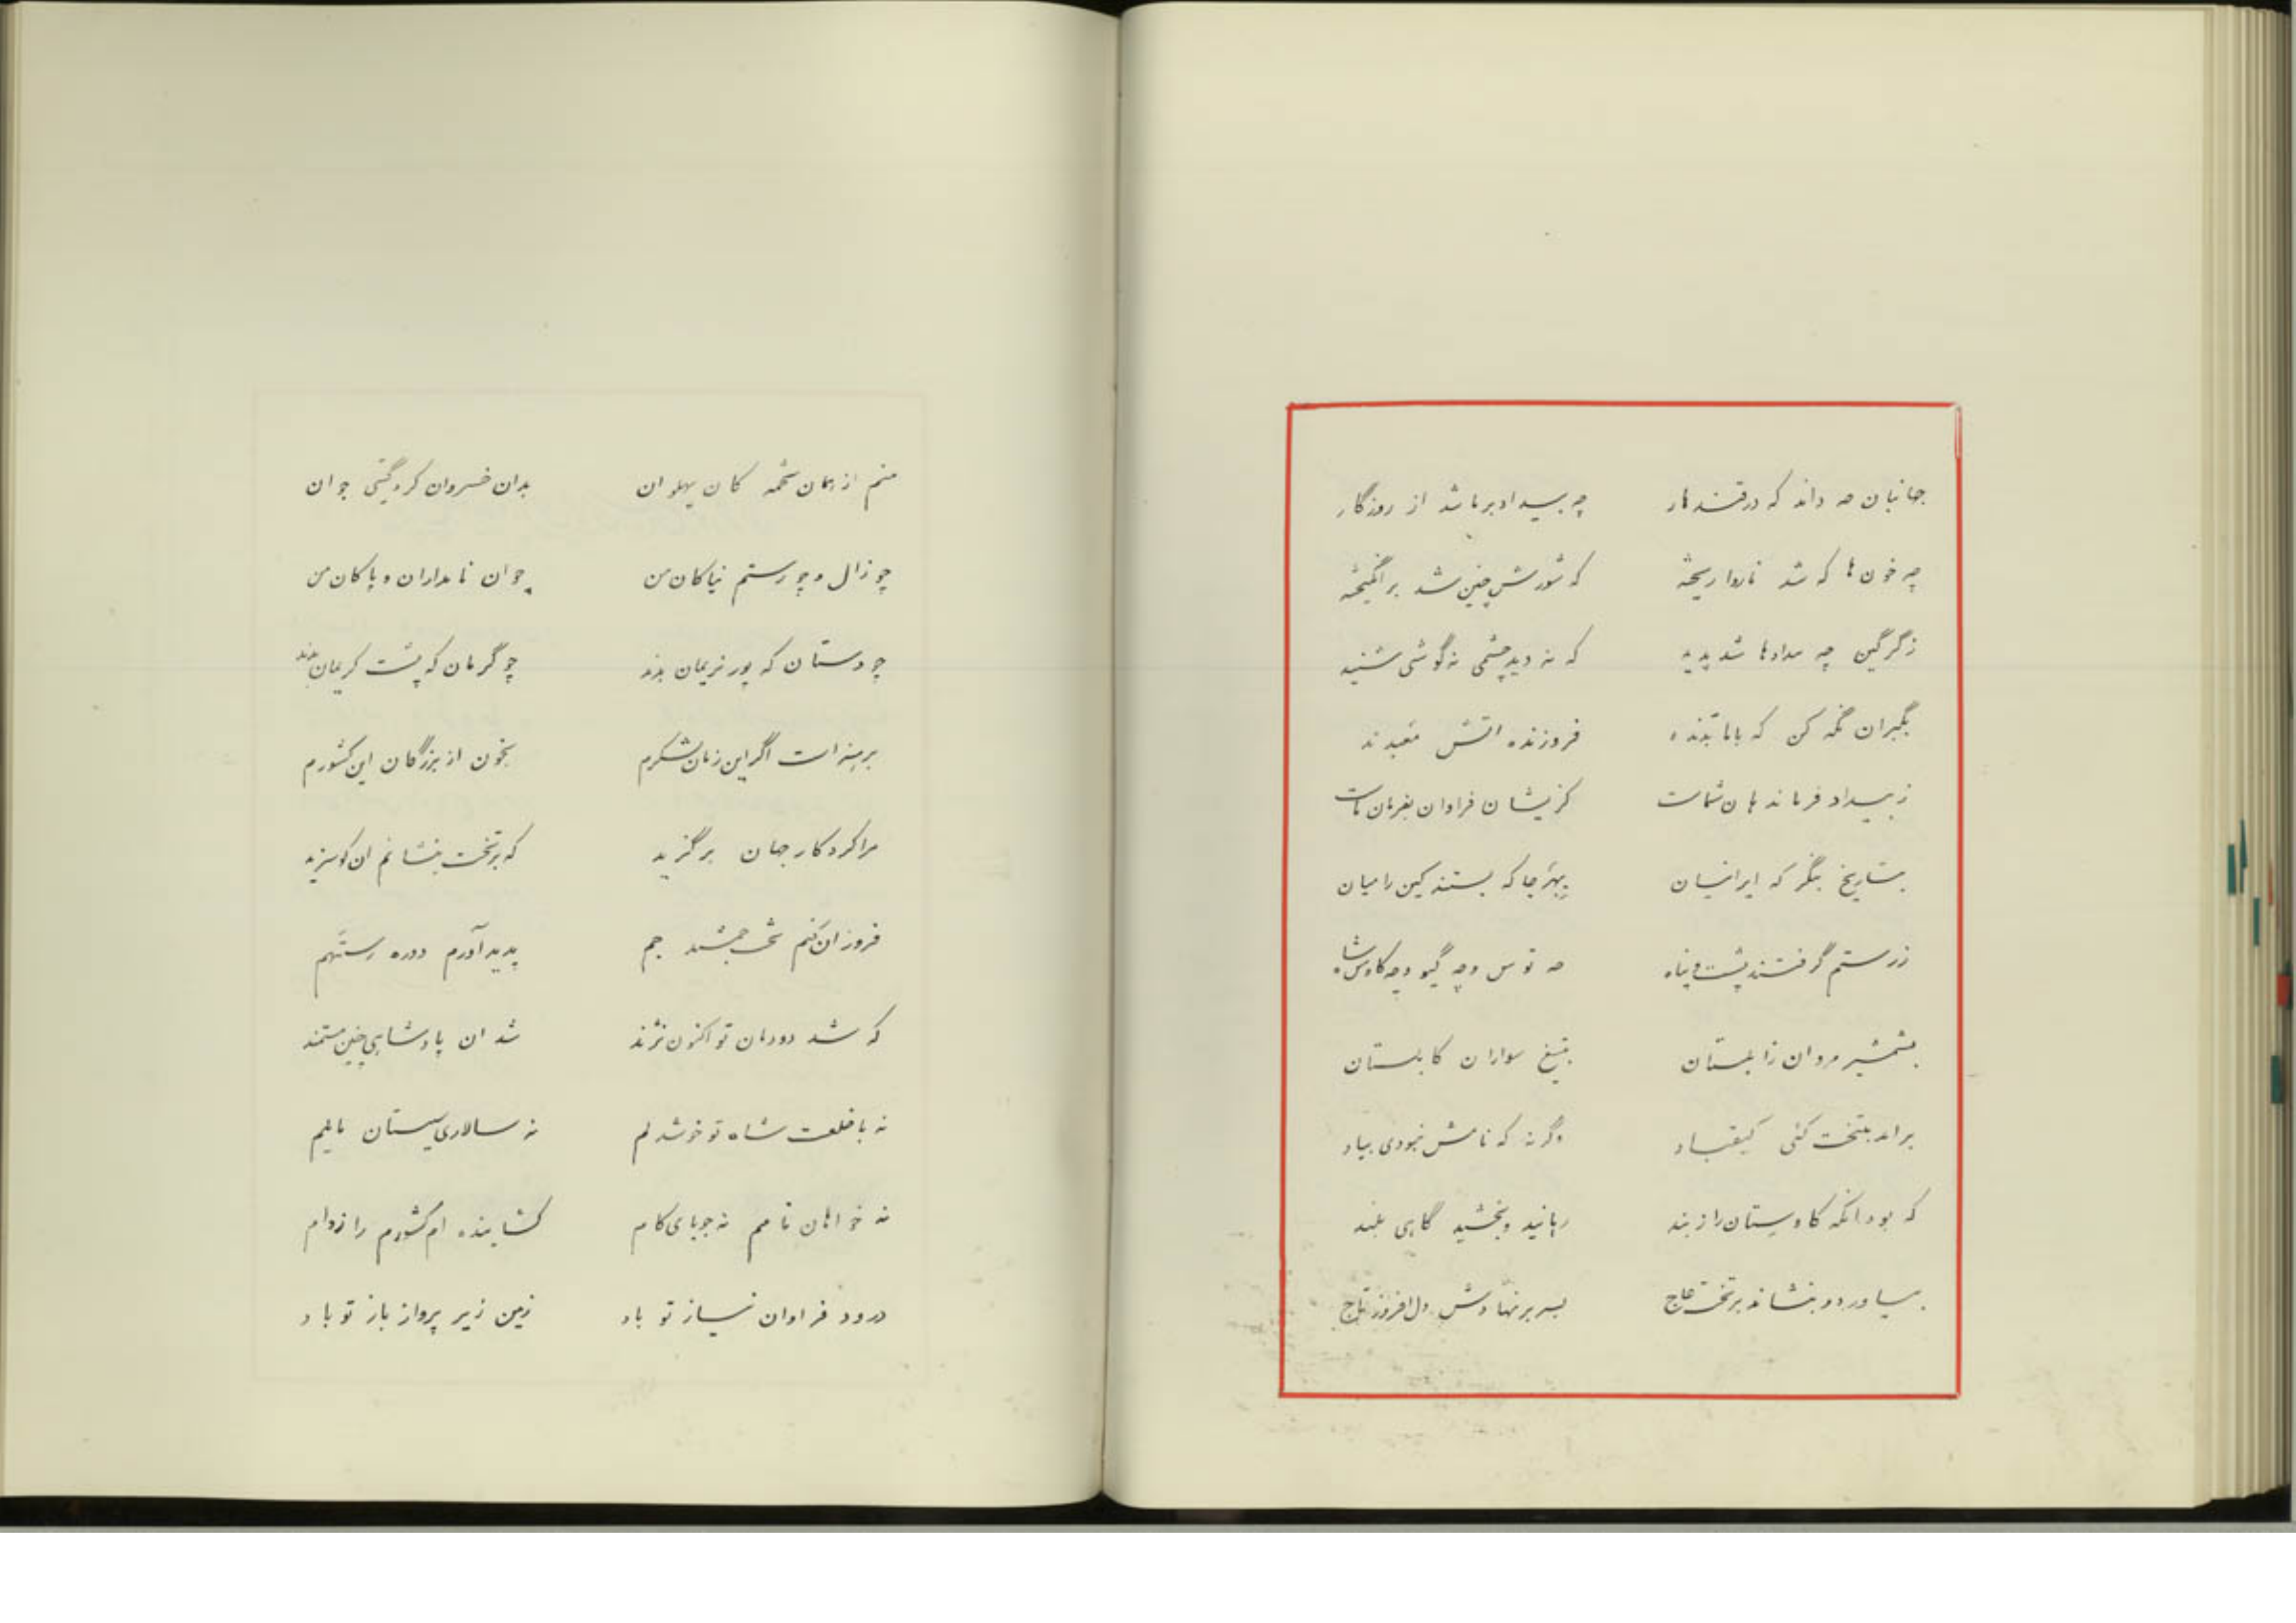 جهانبان چه داند که در قندهار چه بیداد بر ما شد از روزگار
چه خون ها که شد ناروا ریخته که شورش چنین شد برانگیخته
ز گرگین چه بیدادها شد پدید که نه دید چشمی نه گوشی شنید
بگبران نگه کن که با ما بدند فروزنده اتش معبدند
ز بیداد فرماندهان شماست کزیشان فراوان بفرمان ماست
بتاریخ بنگر که ایرانیان بهر جا که بستند کین را میان
ز رستم گرفتند پشت و پناه چه توس و چه گیو و چه کاوس شاه
بشمشیر مردان زابلستان بتیغ سواران کابلستان
برامد بتخت کئی کیقباد وگرنه که نامش نبودی بیاد
که بود انکه کاوستان را ز بند رهانید و بخشید گاهی بلند
بیاورد و بنشاند بر تخت عاج بسر بر نهادش دل افروز تاج
منم از همان تخمه کان پهلوان بدان خسروان کرد گیتی جوان
چو زال و چو رستم نیاکان من جوان نامداران و پاکان من
چو دستان که پور نریمان بدند چو گرمان که پشت کریمان بدند
برهنه است اگر این زمان لشکرم بخون از بزرگان این کشورم
مرا کردگار جهان برگزید که بر تخت بنشانم ان کو سزید
فروزان کنم تخت جمشید جم پدید آورم دوره رستهم
که شد دودمان تو اکنون نژند شد ان پادشاهی چنین مستمند
نه با خلعت شاه تو خوشدلم نه سالاری سیستان مایلم
نه خواهان نامم نه جویای کام گشاینده ام کشورم را ز دام
درود فراوان نیاز تو باد زمین زیر پرواز باز تو باد